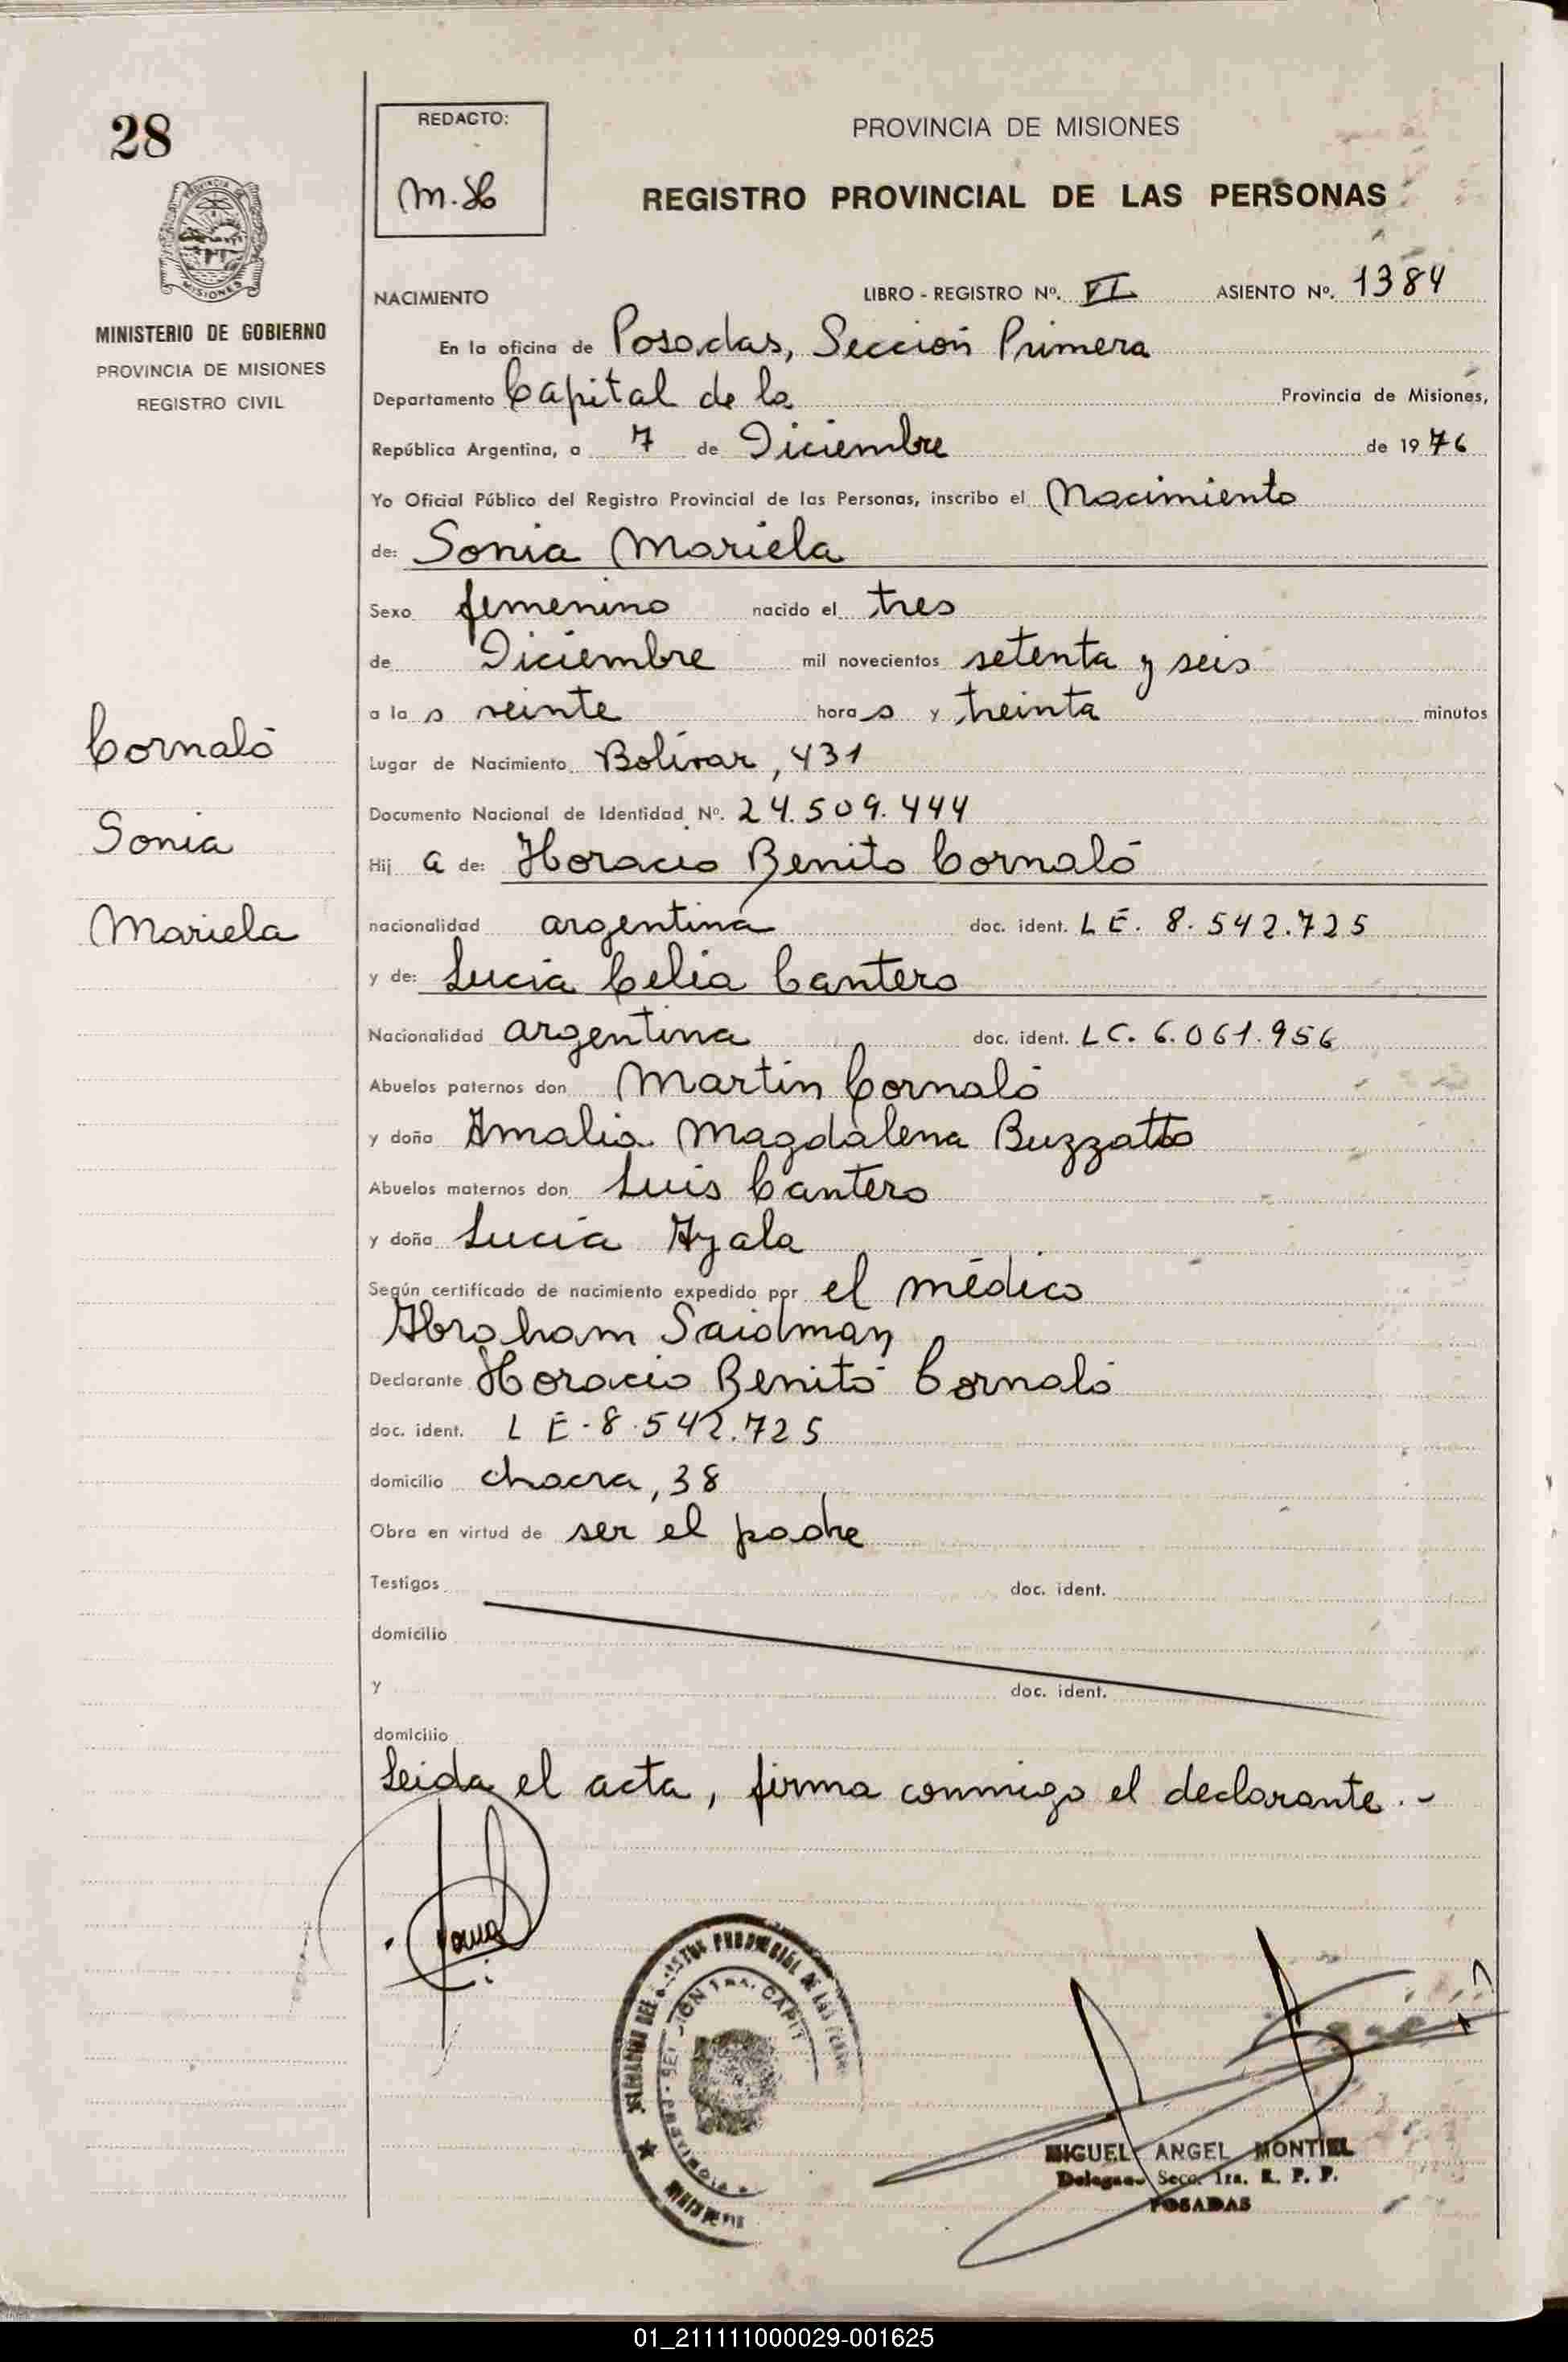 28
MINISTERIO DE GOBIERNO
PROVINCIA DE MISIONES
REGISTRO CIVIL
Cornaló
Sonia
Mariela
REDACTO:
M.H
PROVINCIA DE MISIONES
REGISTRO PROVINCIAL DE LAS PERSONAS
NACIMIENTO LIBRO - REGISTRO Nº. VI ASIENTO Nº. 1384
En la oficina de Posadas, Sección Primera
Departamento Capital de la Provincia de Misiones,
República Argentina, a 7 de Diciembre de 1976
Yo Oficial Público del Registro Provincial de las Personas, inscribo el Nacimiento
de: Sonia Mariela
Sexo femenino nacido el tres
de Diciembre mil novecientos setenta y seis
a la s veinte hora s y treinta minutos
Lugar de Nacimiento Bolívar, 431
Documento Nacional de Identidad Nº. 24.509.444
Hij a de: Horacio Benito Cornaló
nacionalidad argentina doc. ident. LE. 8.542.725
y de: Lucia Celia Cantero
Nacionalidad argentina doc. ident. LC. 6.061.956
Abuelos paternos don Martin Cornaló
y doña Amalia Magdalena Buzzatto
Abuelos maternos don Luis Cantero
y doña Lucía Ayala
Según certificado de nacimiento expedido por el médico
Abraham Saidman
Declarante Horacio Benito Cornaló
doc. ident. LE-8.542.725
domicilio chacra, 38
Obra en virtud de ser el padre
Testigos doc. ident.
domicilio
y doc. ident.
domicilio
Leida el acta, firma conmigo el declarante.-
MIGUEL ANGEL MONTIEL
Delegado Secc. 1ra. R. P. P.
POSADAS
01_211111000029-001625